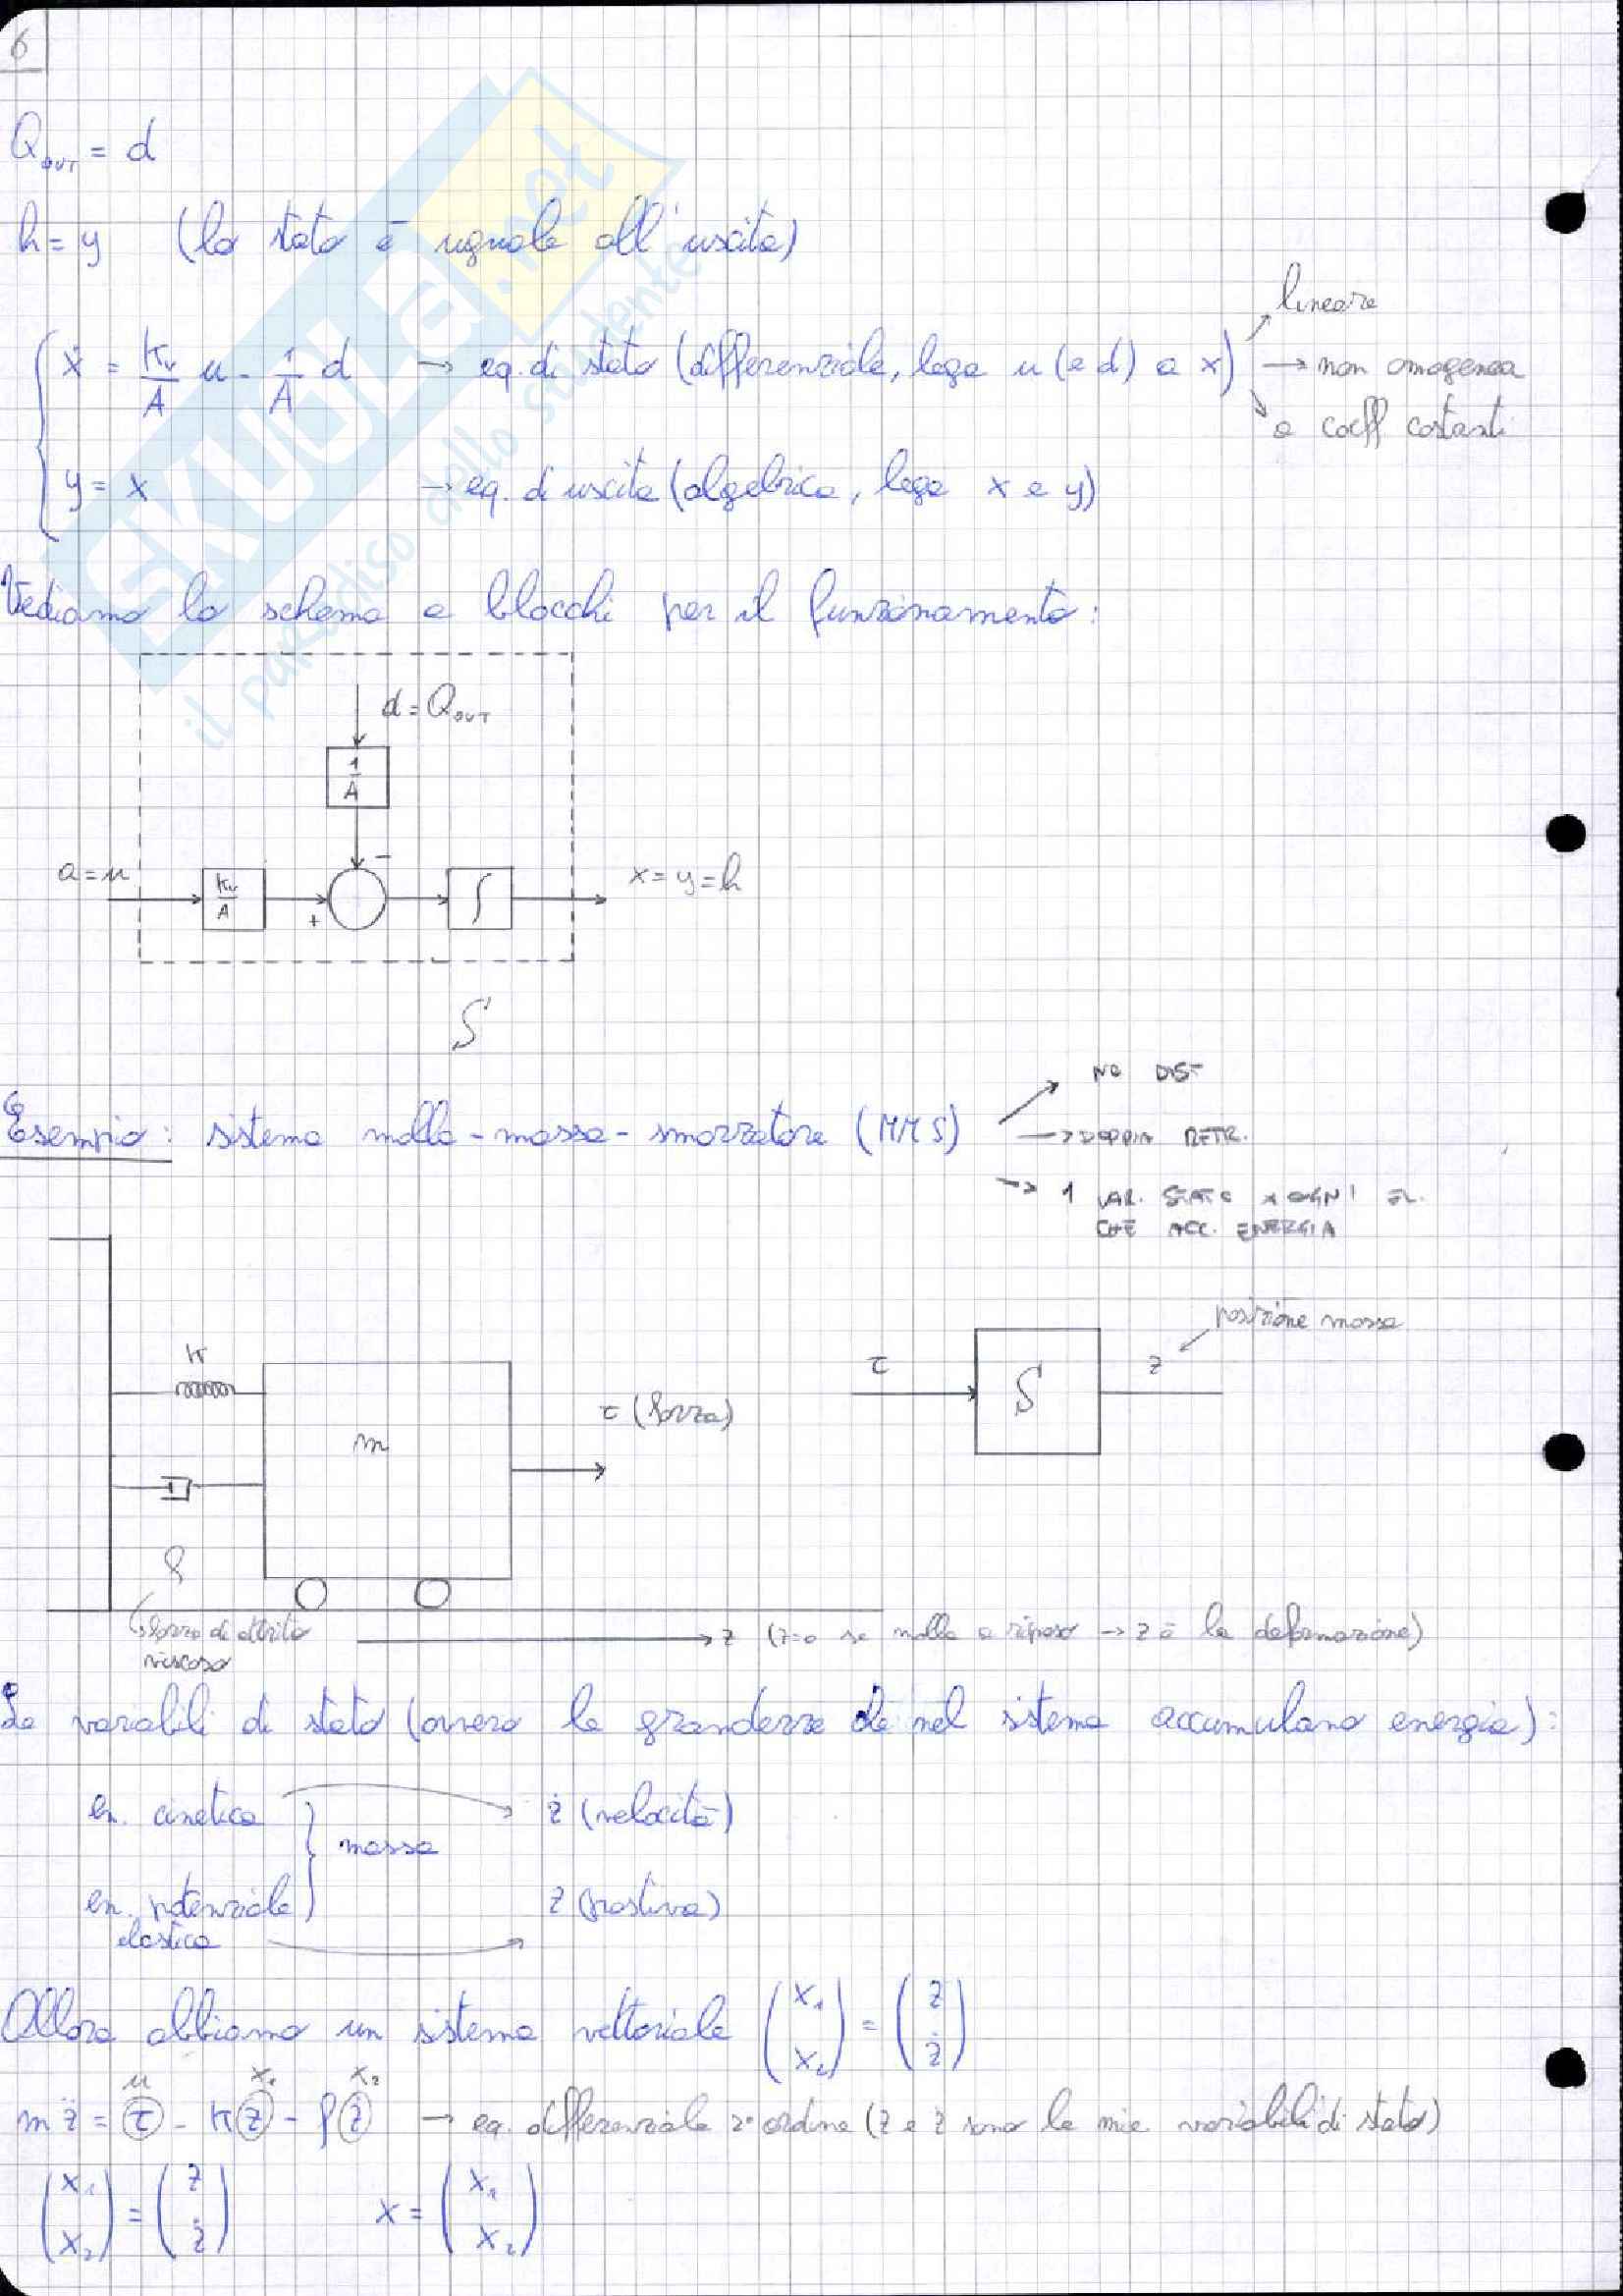 6
Q_OUT = d
h = y (lo stato è uguale all'uscita)
ẋ = Kv/A u - 1/A d → eq. di stato (differenziale, lega u (e d) a x)
→ lineare
→ non omogenea
→ a coeff costanti
y = x → eq. di uscita (algebrica, lega x e y)
Vediamo lo schema a blocchi per il funzionamento:
d = Q_OUT
1/A
a = u
Kv/A
+
-
∫
x = y = h
S
Esempio: sistema molla-massa-smorzatore (MMS)
→ NO DIST
→ DOPPIA RETR.
→ 1 VAR. STATO x OGNI EL.
CHE ACC. ENERGIA
K
m
τ (forza)
τ
S
z
posizione massa
ρ
forza di attrito
viscoso
z (z=0 se molla a riposo → z è la deformazione)
Le variabili di stato (ovvero le grandezze che nel sistema accumulano energia):
en. cinetica
ż (velocità)
massa
en. potenziale
elastica
z
Allora abbiamo un sistema vettoriale (x₁ x₂) = (z ż)
u x₁ x₂
m z̈ = τ - K z - ρ ż → eq. differenziale 2° ordine (z e ż sono le mie variabili di stato)
(x₁ x₂) = (z ż) x = (x₁ x₂)
SKUOLA.net
il paradiso dello studente